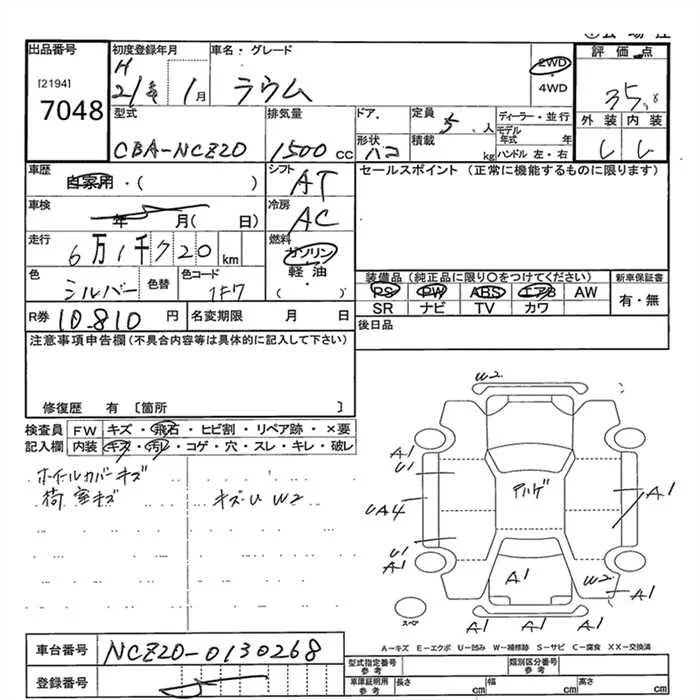 出品番号
[2194]
7048
初度登録年月
H
21年 1月
車名・グレード
ラウム
2WD
4WD
評価点
35
外装 内装
型式
CBA-NCZ20
排気量
1500 CC
ドア
形状
ハコ
定員
5 人
積載
kg
ディーラー・並行
モデル年式 年
ハンドル 左・右
車歴
自家用・( )
車検
年 月( 日)
走行
6万1千720km
色
シルバー
色替
色コード
1F7
シフト
AT
冷房
AC
燃料
ガソリン
軽油
( )
セールスポイント (正常に機能するものに限ります)
装備品 (純正品に限り○をつけてください)
PS PW ABS エアB AW
SR ナビ TV カワ
新車保証書
有・無
後日品
R券 10.810 円
名変期限 月 日
注意事項申告欄(不具合内容等は具体的に記入して下さい)
修復歴 有 [箇所 ]
検査員 FW キズ・飛石・ヒビ割・リペア跡・×要
記入欄 内装 キズ・汚レ・コゲ・穴・スレ・キレ・破レ
ホイールカバーキズ
荷室キズ
キズU W2
W2
A1
U1
UA4
U1
A1
アルゲ
A1
A1
W2
A1
A1
A1
スペア
A-キズ E-エクボ U-凹み W-補修跡 S-サビ C-腐食 XX-交換済
車台番号
NCZ20-0130268
登録番号
型式指定番号 参考
類別区分番号 参考
車庫証明用 参考
長さ cm
幅 cm
高さ cm